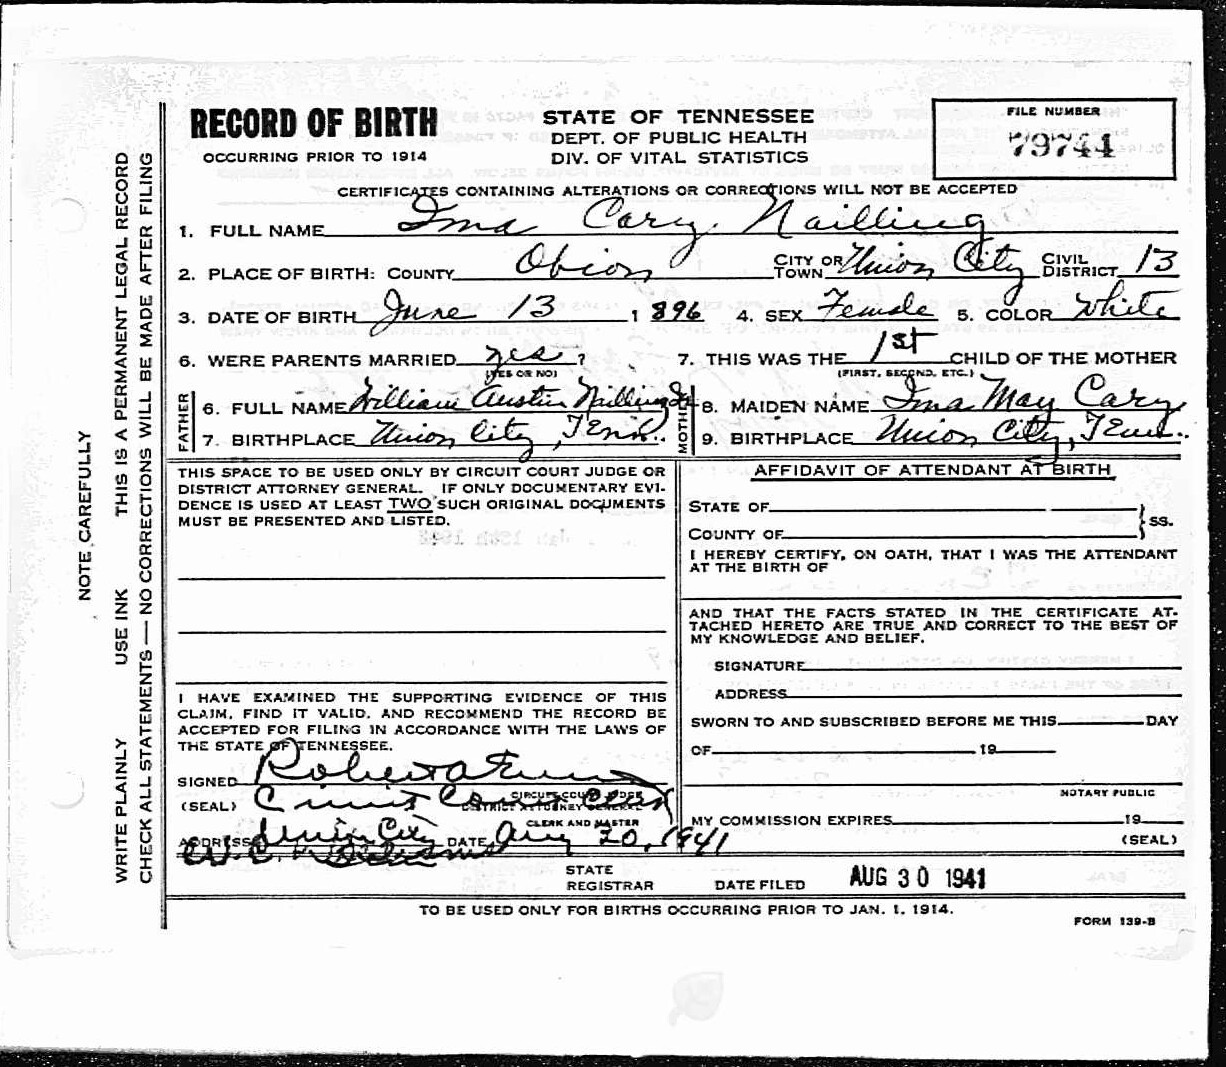 RECORD OF BIRTH
OCCURRING PRIOR TO 1914
STATE OF TENNESSEE
DEPT. OF PUBLIC HEALTH
DIV. OF VITAL STATISTICS
FILE NUMBER
79744
CERTIFICATES CONTAINING ALTERATIONS OR CORRECTIONS WILL NOT BE ACCEPTED
1. FULL NAME Ima Cary Nailling
2. PLACE OF BIRTH: COUNTY Obion CITY OR TOWN Union City CIVIL DISTRICT 13
3. DATE OF BIRTH June 13 1896 4. SEX Female 5. COLOR White
6. WERE PARENTS MARRIED yes ? 7. THIS WAS THE 1st CHILD OF THE MOTHER
(YES OR NO) (FIRST, SECOND, ETC.)
FATHER
6. FULL NAME William Austin Nailling Jr
7. BIRTHPLACE Union City, Tenn.
MOTHER
8. MAIDEN NAME Ima May Cary
9. BIRTHPLACE Union City, Tenn.
THIS SPACE TO BE USED ONLY BY CIRCUIT COURT JUDGE OR
DISTRICT ATTORNEY GENERAL. IF ONLY DOCUMENTARY EVI-
DENCE IS USED AT LEAST TWO SUCH ORIGINAL DOCUMENTS
MUST BE PRESENTED AND LISTED.
I HAVE EXAMINED THE SUPPORTING EVIDENCE OF THIS
CLAIM, FIND IT VALID, AND RECOMMEND THE RECORD BE
ACCEPTED FOR FILING IN ACCORDANCE WITH THE LAWS OF
THE STATE OF TENNESSEE.
SIGNED Robert A
(SEAL) Circuit Court Clerk
CIRCUIT COURT JUDGE
DISTRICT ATTORNEY GENERAL
CLERK AND MASTER
ADDRESS Union City DATE Aug 20, 1941
W. C. Williams
AFFIDAVIT OF ATTENDANT AT BIRTH
STATE OF
COUNTY OF
SS.
I HEREBY CERTIFY, ON OATH, THAT I WAS THE ATTENDANT
AT THE BIRTH OF
AND THAT THE FACTS STATED IN THE CERTIFICATE AT-
TACHED HERETO ARE TRUE AND CORRECT TO THE BEST OF
MY KNOWLEDGE AND BELIEF.
SIGNATURE
ADDRESS
SWORN TO AND SUBSCRIBED BEFORE ME THIS DAY
OF 19
NOTARY PUBLIC
MY COMMISSION EXPIRES 19
(SEAL)
STATE
REGISTRAR DATE FILED AUG 30 1941
TO BE USED ONLY FOR BIRTHS OCCURRING PRIOR TO JAN. 1, 1914.
FORM 139-B
NOTE CAREFULLY
WRITE PLAINLY USE INK THIS IS A PERMANENT LEGAL RECORD
CHECK ALL STATEMENTS — NO CORRECTIONS WILL BE MADE AFTER FILING